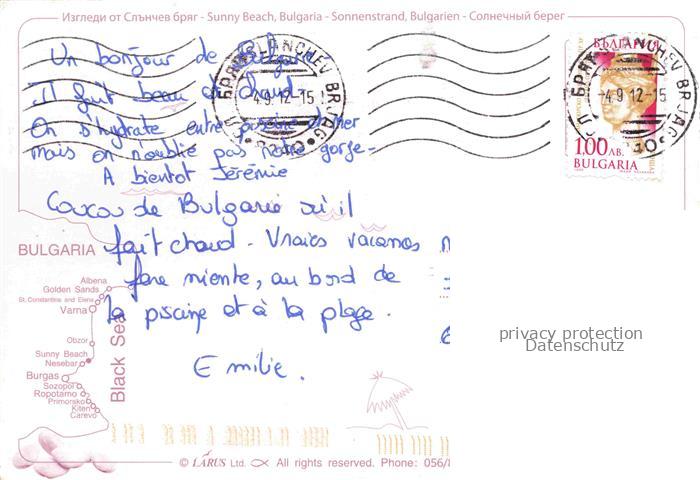 Изгледи от Слънчев бряг - Sunny Beach, Bulgaria - Sonnenstrand, Bulgarien - Солнечный берег
Un bonjour de Bulgarie
Il fait beau et chaud.
On s'hydrate entre piscine et mer
mais on n'oublie pas notre gorge-
A bientot Jérémie
Coucou de Bulgarie où il
fait chaud. Vraies vacances
fare niente, au bord de
la piscine et à la plage.
Emilie.
SLANCHEV BRJAG
4.9.12-15
SLANCHEV BRJAG
4.9.12-15
БЪЛГАРИЯ
1.00 ЛВ.
BULGARIA
BULGARIA
Albena
Golden Sands
St. Constantine and Elena
Varna
Obzor
Sunny Beach
Nesebar
Burgas
Sozopol
Ropotamo
Primorsko
Kiten
Carevo
Black Sea
privacy protection
Datenschutz
© LARUS Ltd. All rights reserved. Phone: 056/